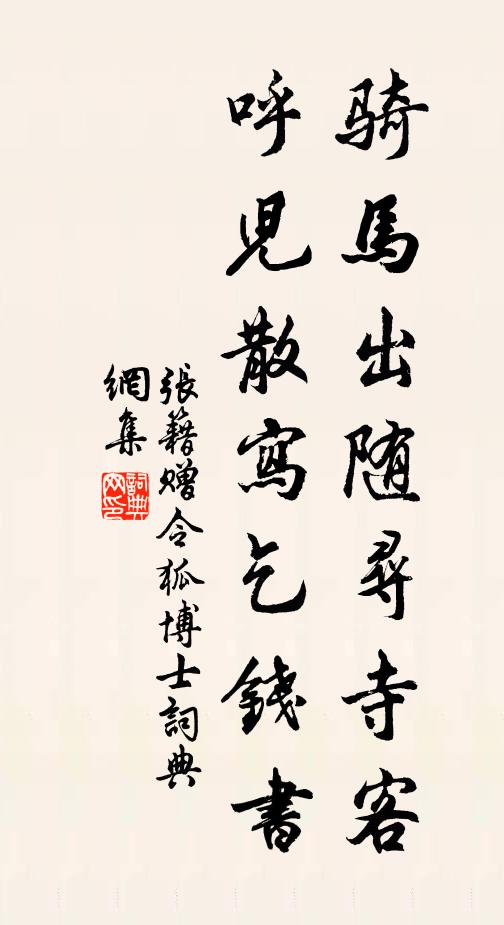 骑馬出随尋寺客
呼児散寫乞錢書
張籍赠令狐博士詞典
網集
詞典
网印